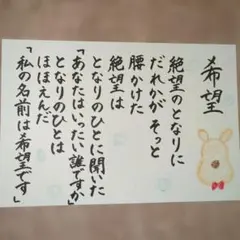 希望
絶望のとなりに
だれかが そっと
腰かけた
絶望は
となりのひとに聞いた
「あなたはいったい誰ですか」
となりのひとは
ほほえんだ
「私の名前は希望です」